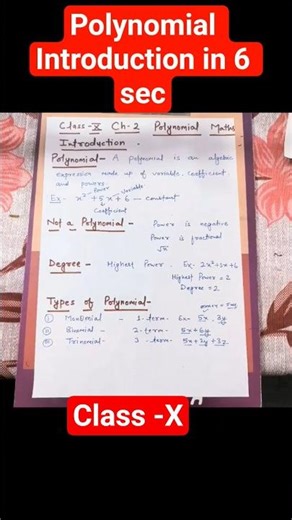 Polynomial
Introduction in 6
sec
Class -X Ch-2 Polynomial Maths
Introduction.
Polynomial - A polynomial is an algebric
expression made up of variable, coefficient
and powers.
Power variable
Ex- x² + 5x + 6 - constant
Coefficient
Not a Polynomial - Power is negative
Power is fractional
√x
Degree - Highest Power. Ex. 2x²+3x+6
Highest Power = 2
Degree = 2
Types of Polynomial -
① Monomial - 1-term Ex- 5x, 3y
② Biomial - 2-term- 5x+6y
③ Trinomial - 3-term- 5x+3y+3z
Class -X